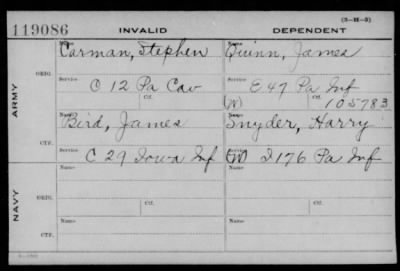 (3-M-3)
119086 INVALID DEPENDENT
Name Name
Carman, Stephen Quinn, James
ORIG. Service Service
C 12 Pa Cav E 47 Pa Inf
Ctf. (W) Ctf. 105783
ARMY
Name Name
Bird, James Snyder, Harry
CTF. Service Service
C 29 Iowa Inf (W) I 176 Pa Inf
Name Name
ORIG.
Service Ctf. Service Ctf.
NAVY
Name Name
CTF.